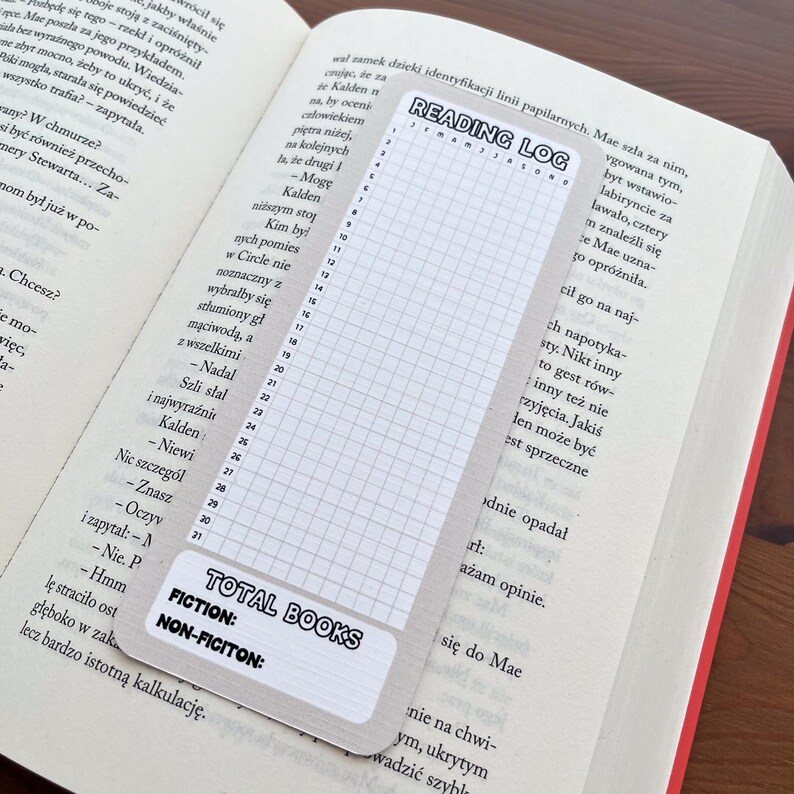 wrócił
oje stoją z zaciśnięty-, jakby właśnie
się tego – rzekł i opróżnił
ręce. Mae poszła za jego przykładem.
bez wyraźnego powodu. Wiedzia-
zbyt mocno, żeby to ukryć, i że
Póki mogła, starała się powiedzieć
wszystko trafia? – zapytała.
W chmurze?
si być również przecho-
mery Stewarta… Za-
nom był już w po-
. Chcesz?
ie mo-
więc,
ła-
ie
wał zamek dzięki identyfikacji linii papilarnych. Mae szła za nim,
czując, że za
że Kalden m
na, by oceni
człowiekiem
piętra niżej,
na kolejnych
że drugi
– Mogę
Kalden
niższym stop
Kim by
pomies
w Circle nie
noznaczny z
wybrałby się
stłumiony gł
mąciwodą, a
z wszelkimi
– Nadal
Szli słal
i najwyraźnie
Kalden
– Niewi
Nic szczegól
– Znasz
– Oczyw
i zapytał: – M
– Nie. P
– Hmm
lę straciło ost
głęboko w zaka
lecz bardzo istotną kalkulację.
ygowana tym,
byt wstawio-
labiryncie za
dawało, cztery
znaleźli się
ce Mae uzna-
opróżniła.
cił go na naj-
napotyka-
sty. Nikt inny
to gest rów-
inny też nie
rzyjęcia. Jakiś
den może być
est sprzeczne
odnie opadał
rł:
ażam opinie.
się do Mae
enie na chwi-
, ukrytym
wadzić szybk
READING LOG
J F M A M J J A S O N D
1
2
3
4
5
6
7
8
9
10
11
12
13
14
15
16
17
18
19
20
21
22
23
24
25
26
27
28
29
30
31
TOTAL BOOKS
FICTION:
NON-FICITON: